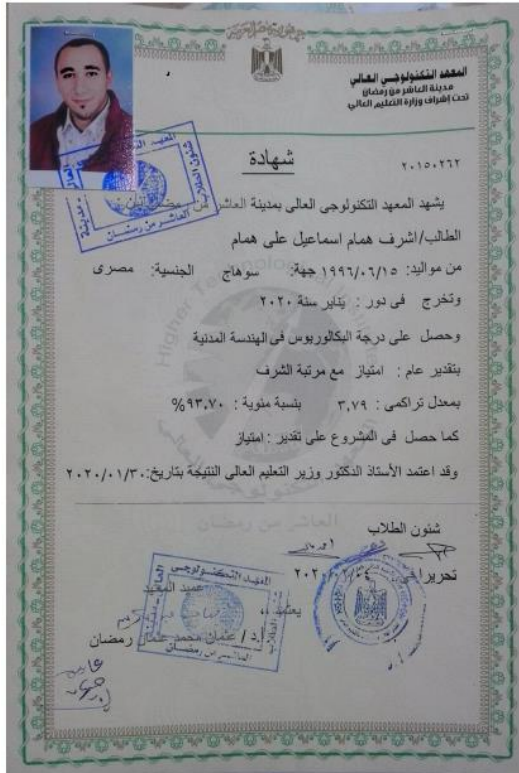 جمهورية مصر العربية
المعهد التكنولوجي العالي
مدينة العاشر من رمضان
تحت إشراف وزارة التعليم العالي
شهادة
٢٠١٥٠٢٦٢
يشهد المعهد التكنولوجى العالى بمدينة العاشر من رمضان بأن
الطالب/اشرف همام اسماعيل على همام
من مواليد: ١٩٩٦/٠٦/١٥ جهة: سوهاج الجنسية: مصرى
وتخرج فى دور : يناير سنة ٢٠٢٠
وحصل على درجة البكالوريوس فى الهندسة المدنية
بتقدير عام : امتياز مع مرتبة الشرف
بمعدل تراكمى : ٣,٧٩ بنسبة مئوية : ٩٣,٧٠%
كما حصل فى المشروع على تقدير : امتياز
وقد اعتمد الأستاذ الدكتور وزير التعليم العالى النتيجة بتاريخ:٢٠٢٠/٠١/٣٠
Higher Technological Institute
العاشر من رمضان
شئون الطلاب
تحريرا في
عميد المعهد
يعتمد ،،
أ.د / عثمان محمد عثمان رمضان
المعهد التكنولوجى العالى
شئون الطلاب
العاشر من رمضان